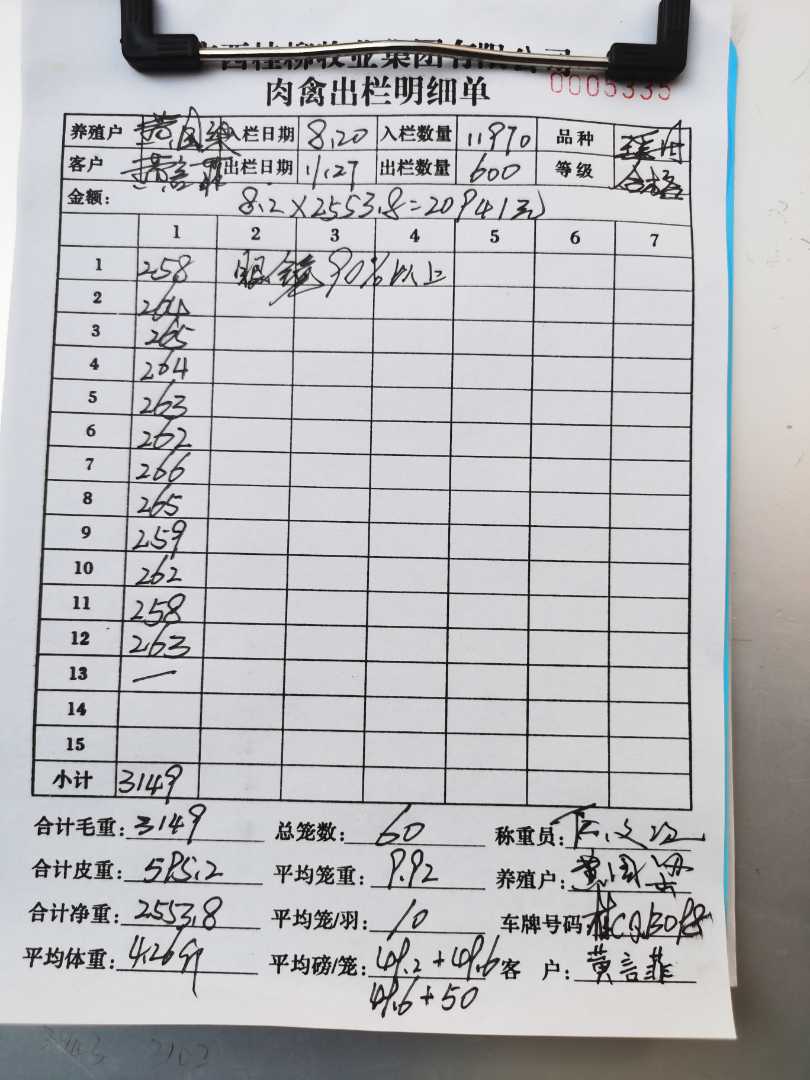 西桂柳牧业集团有限公司
肉禽出栏明细单 0005335
养殖户 入栏日期 8.20 入栏数量 11970 品种
客户 黄言菲 出栏日期 11.27 出栏数量 600 等级 合格
金额: 8.2×2553.8=20941元
1 2 3 4 5 6 7
1 258 90%以上
2 264
3 265
4 264
5 263
6 262
7 266
8 265
9 259
10 262
11 258
12 263
13 —
14
15
小计 3149
合计毛重: 3149 总笼数: 60 称重员:
合计皮重: 595.2 平均笼重: 9.92 养殖户:
合计净重: 2553.8 平均笼/羽: 10 车牌号码:
平均体重: 4.26斤 平均磅/笼: 49.2+49.6 客户: 黄言菲
49.6+50